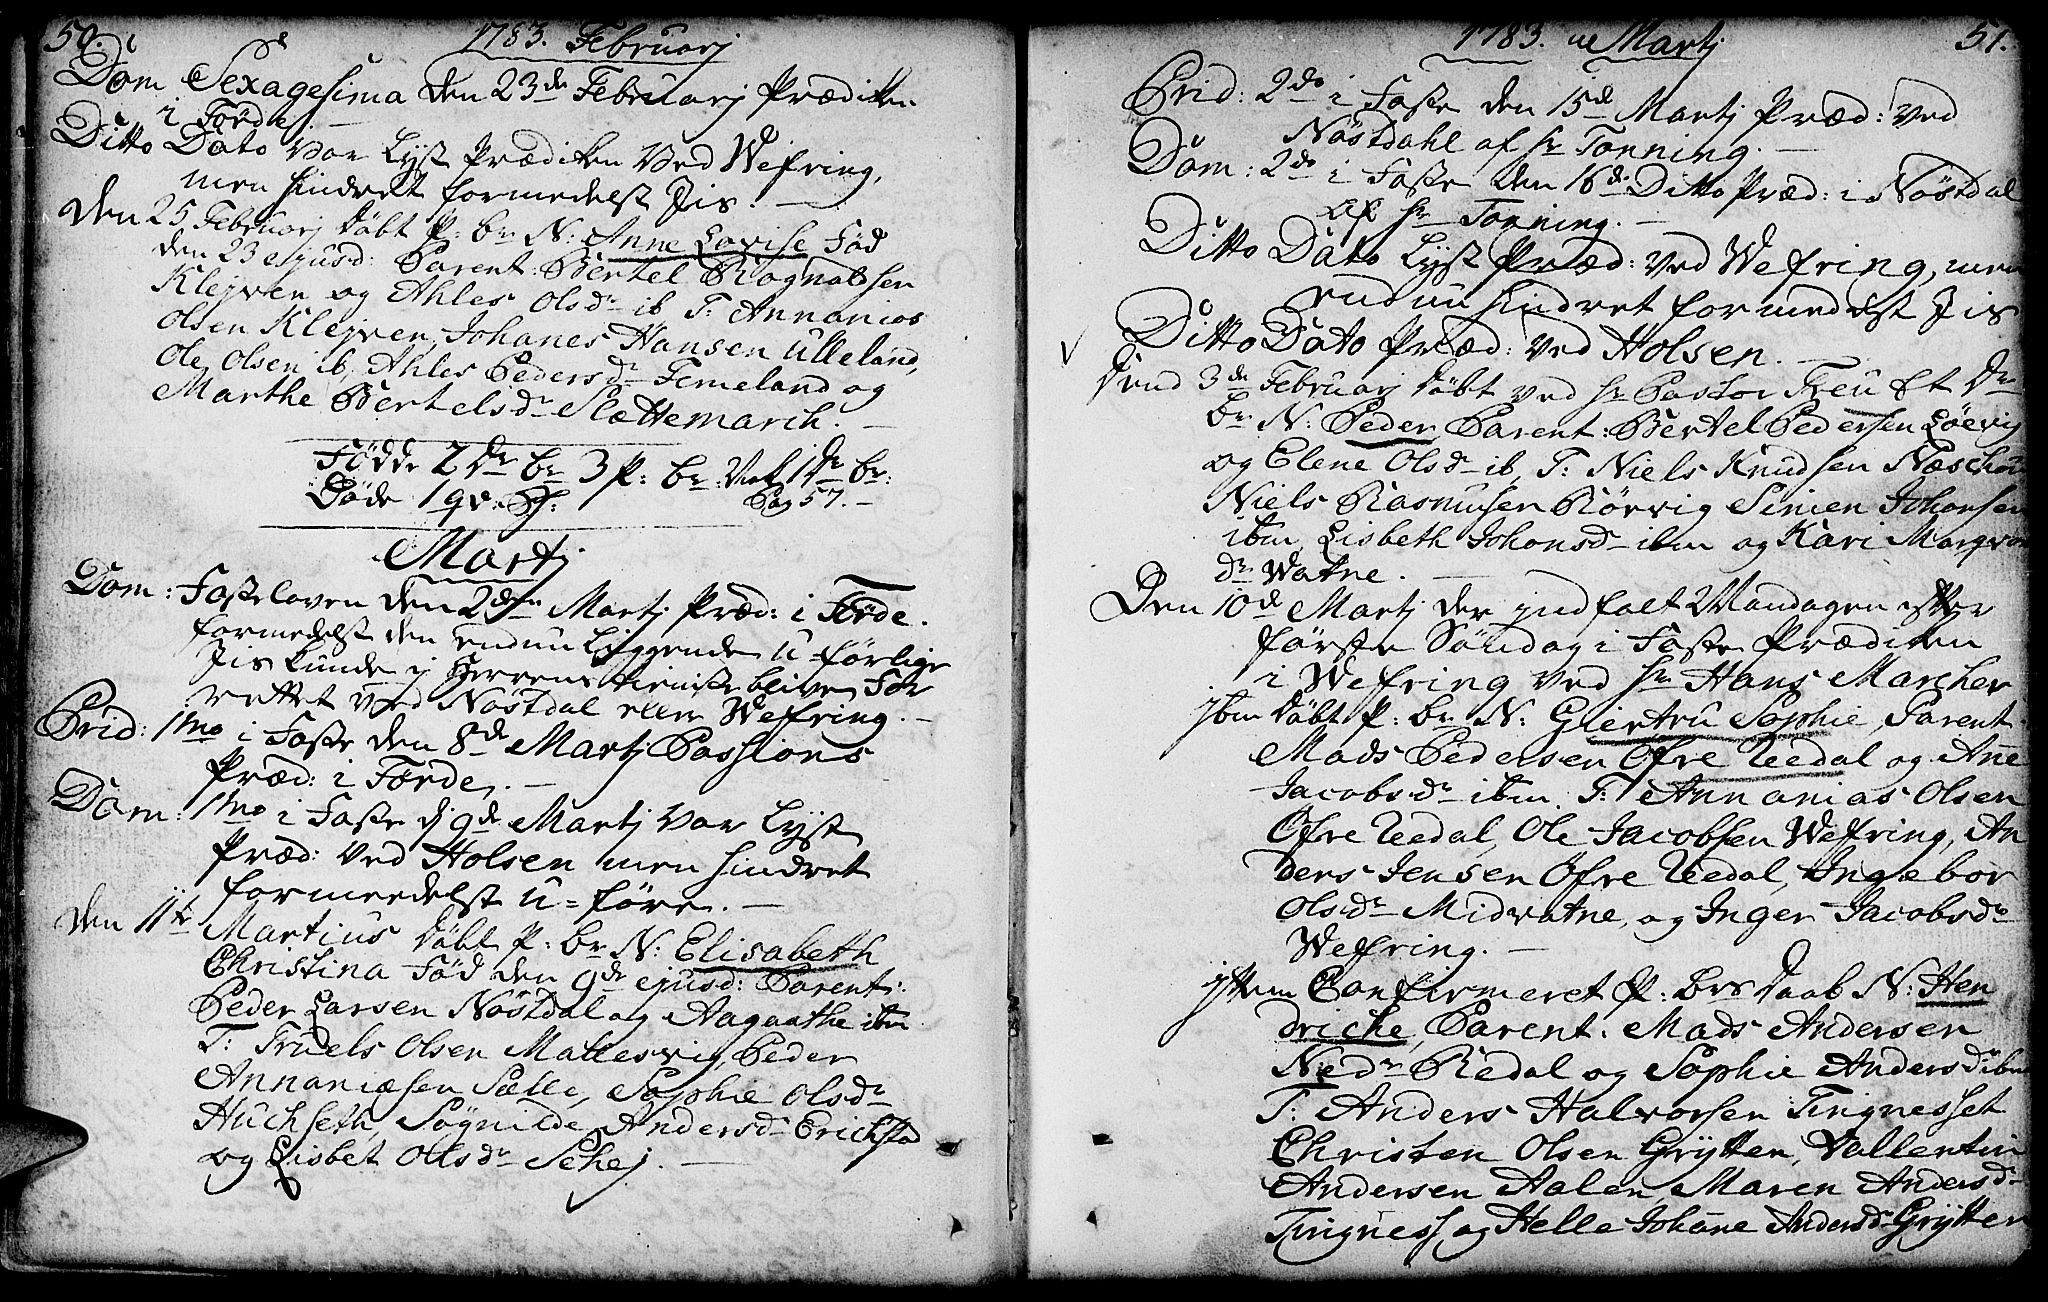 50.
1783. Februarj
Dom Sexagesima den 23de Februarj Prædiken
i Förde. —
Ditto Dato var Lyst Prædiken ved Wefring,
men hindret formedelst Jis. —
Den 25 Februarj döbt P: br N: Anne Lovise Föd
den 23 ejusd: Parent: Bertel Rognalsen
Klejven og Ahles Olsdr ib T: Annanias
Olsen Klejven, Johanes Hansen Ulleland,
Ole Olsen ib, Ahles Pedersdr Femeland og
Marthe Bertelsdr Slættemarch. —
Födde 2 Dr br 3 P: br: 1 Dr br:
Döde 1 qv. Pag 57. —
Martj
Dom: Fastelaven den 2den Martj Præd: i Förde.
formedelst den endnu liggende u-förlige
Jis kunde ej Herrens tieniste blive for
rettet ved Nöstdal eller Wefring. —
Prid: 1mo i Faste den 8de Martj Passions
Præd: i Förde. —
Dom: 1mo i Faste d 9de Martj var Lyst
Præd: ved Holsen men hindret
formeedelst u-före. —
den 11te Martius döbt P: br N: Elisabeth
Christina Föd den 9de ejusd: Parent:
Peder Larsen Nöstdal og Aagaathe ibm
T: Truels Olsen Mallesvig, Peder
Annaniæsen Sælle, Sophie Olsdr
Huchseth, Sögnilde Andersdr Erichstad
og Lisbet Olsdr Schej. —
1783. Martj
51.
Prid: 2do i Faste den 15de Martj Præd: ved
Nöstdahl af hr Tonning. —
Dom: 2do i Faste den 16de Ditto Præd: i Nöstdal
af hr Tonning. —
Ditto Dato Lyst Præd: ved Wefring, men
endnu hindret formedelst Jis
Ditto Dato Præd: ved Holsen. —
Dend 3de Februarj döbt ved hr Pastor Freu Et Dr
br N: Peder Parent: Bertel Pedersen Löevig
og Elene Olsdr ib, T: Niels Knudsen
Niels Rasmusen Rörvig Simen Johansen
ibm Lisbeth Johansdr ibm og Kari
dr Watne. —
Den 10de Martj der indfalt Mandagen efter
förste Söndag i Faste Prædiken
i Wefring ved hr Hans Marcher
ibm döbt P: br N: Giertru Sophie, Parent
Mads Pedersen Öfre Uedal og Ane
Jacobsdr ibm. T: Annanias Olsen
Öfre Uedal, Ole Jacobsen Wefring, An
ders Jensen Öfre Uedal, Ingebor
Olsdr Midvatne, og Inger Jacobsdr
Wefring. —
item Confirmeret P: brs Daab N: Hen
driche, Parent: Mads Andersen
Nedr Redal og Sophie Andersd ibm
T: Anders Halvorsen Tingnesset
Christen Olsen Grÿtten, Vallentin
Andersen Aalen, Maren Andersdr
Tingness, og Helle Johane Andersdr Grÿtten